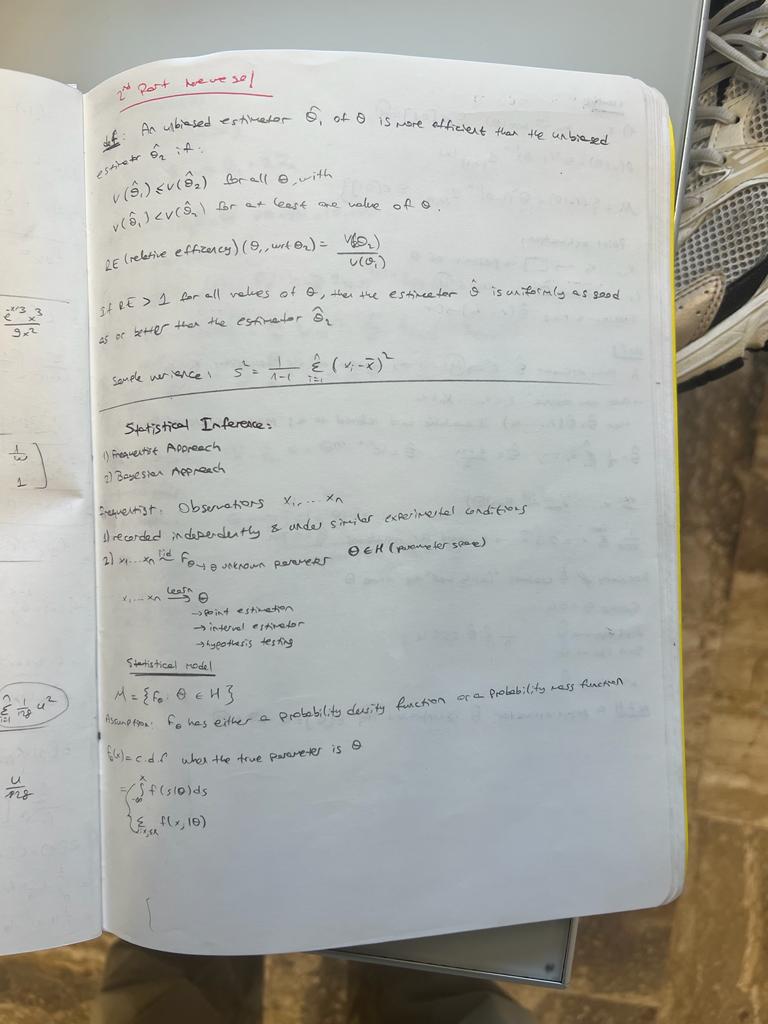 e^-x/3 x^3 / 9x^2
1/w
1
n Σ i=1 1/128 u^2
u/128
2nd Part
def: An unbiased estimator θ̂₁ of θ is more efficient than the unbiased
estimator θ̂₂ if:
V(θ̂₁) ≤ V(θ̂₂) for all θ, with
V(θ̂₁) < V(θ̂₂) for at least one value of θ.
RE (relative efficency) (θ₁, wrt θ₂) = V(θ₂) / V(θ₁)
if RE > 1 for all values of θ, then the estimator θ̂ is uniformly as good
as or better than the estimator θ̂₂
Sample varience: S² = 1/(n-1) Σ i=1 n (xᵢ - x̄)²
Statistical Inference:
1) Frequentist Approach
2) Bayesian Approach
Frequentist: Observations x₁, ... xn
1) recorded independently & under similar experimental conditions
2) x₁ ... xn iid ~ Fθ → θ unknown θ ∈ H (parameter space)
x₁, ... xn Learn → θ
→ point estimation
→ interval estimator
→ hypothesis testing
Statistical model
M = {Fθ: θ ∈ H}
Assumption: Fθ has either a probability density function or a probability mass function
Fθ(x) = c.d.f when the true parameter is θ
= { ∫ -∞ x f(s|θ)ds
{ Σ i:xᵢ≤x f(xᵢ|θ)